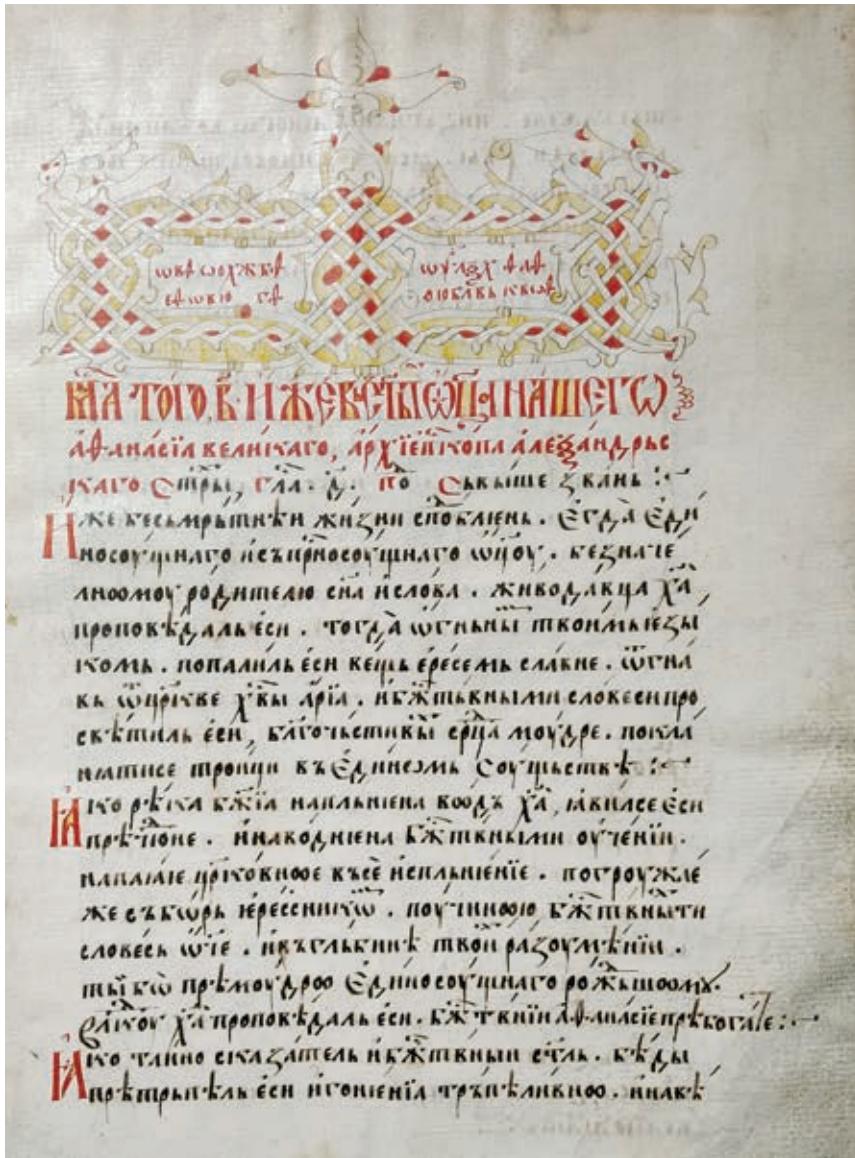 мца того, в҃. иже въ ст҃ыⷯ ѡц҃а нашегѡ
аѳанасїа великаго, архїепⷭкопа алеѯандрьс
каго Стⷯры, глⷭа. д҃. поⷣ Съвыше званъ :~
Иже бесьмрьтнѣи жизни споⷣбліень. Егда̀ Еди
носоущнаго и съприносоущнаго ѡц҃оу. безначе
лноомоу родителю сн҃а и слова. живодавца хⷭа,
проповѣдаль еси. тогда̀ ѡгньныⷨ твоимь ѥзы
комь. попалиль еси вещь ересемь славне. ѿгна
въ ѿ црⷦве хвⷭы арїа. и бжⷭтъвными словеси про
свѣтиль еси, благочьстивыⷯ срⷣца моудре. покла
ниатисе троици въ Единоомь Соущьствѣ :~
Ꙗко рѣка бж҃їа напльниена воодь хⷭа, ꙗвилсе Еси
прѣпоⷣбне. и наводниена бжⷭтвными оученїи.
напаꙗіе црⷦовноое въсѐ испльниенїе. погроужає
же съборь ѥрессничⷭкѡ. поучиноою, бжⷭтвныти
словесь ѡч҃е. и въ гльбинѣ твоиⷯ разоумѣнїи.
ты бѡ прѣмоудроо Единосоущнаго рожⷣьшоомꙋ.
влⷣкоу хⷭа проповѣдаль еси. бжⷭтвнїи аѳанасїе прѣбогате :~
Ꙗко таино сказатель и бжⷭтвныи ст҃ль. бѣды
прѣтрьпѣль еси и гониенїа трьпѣливноо. и лакѣ